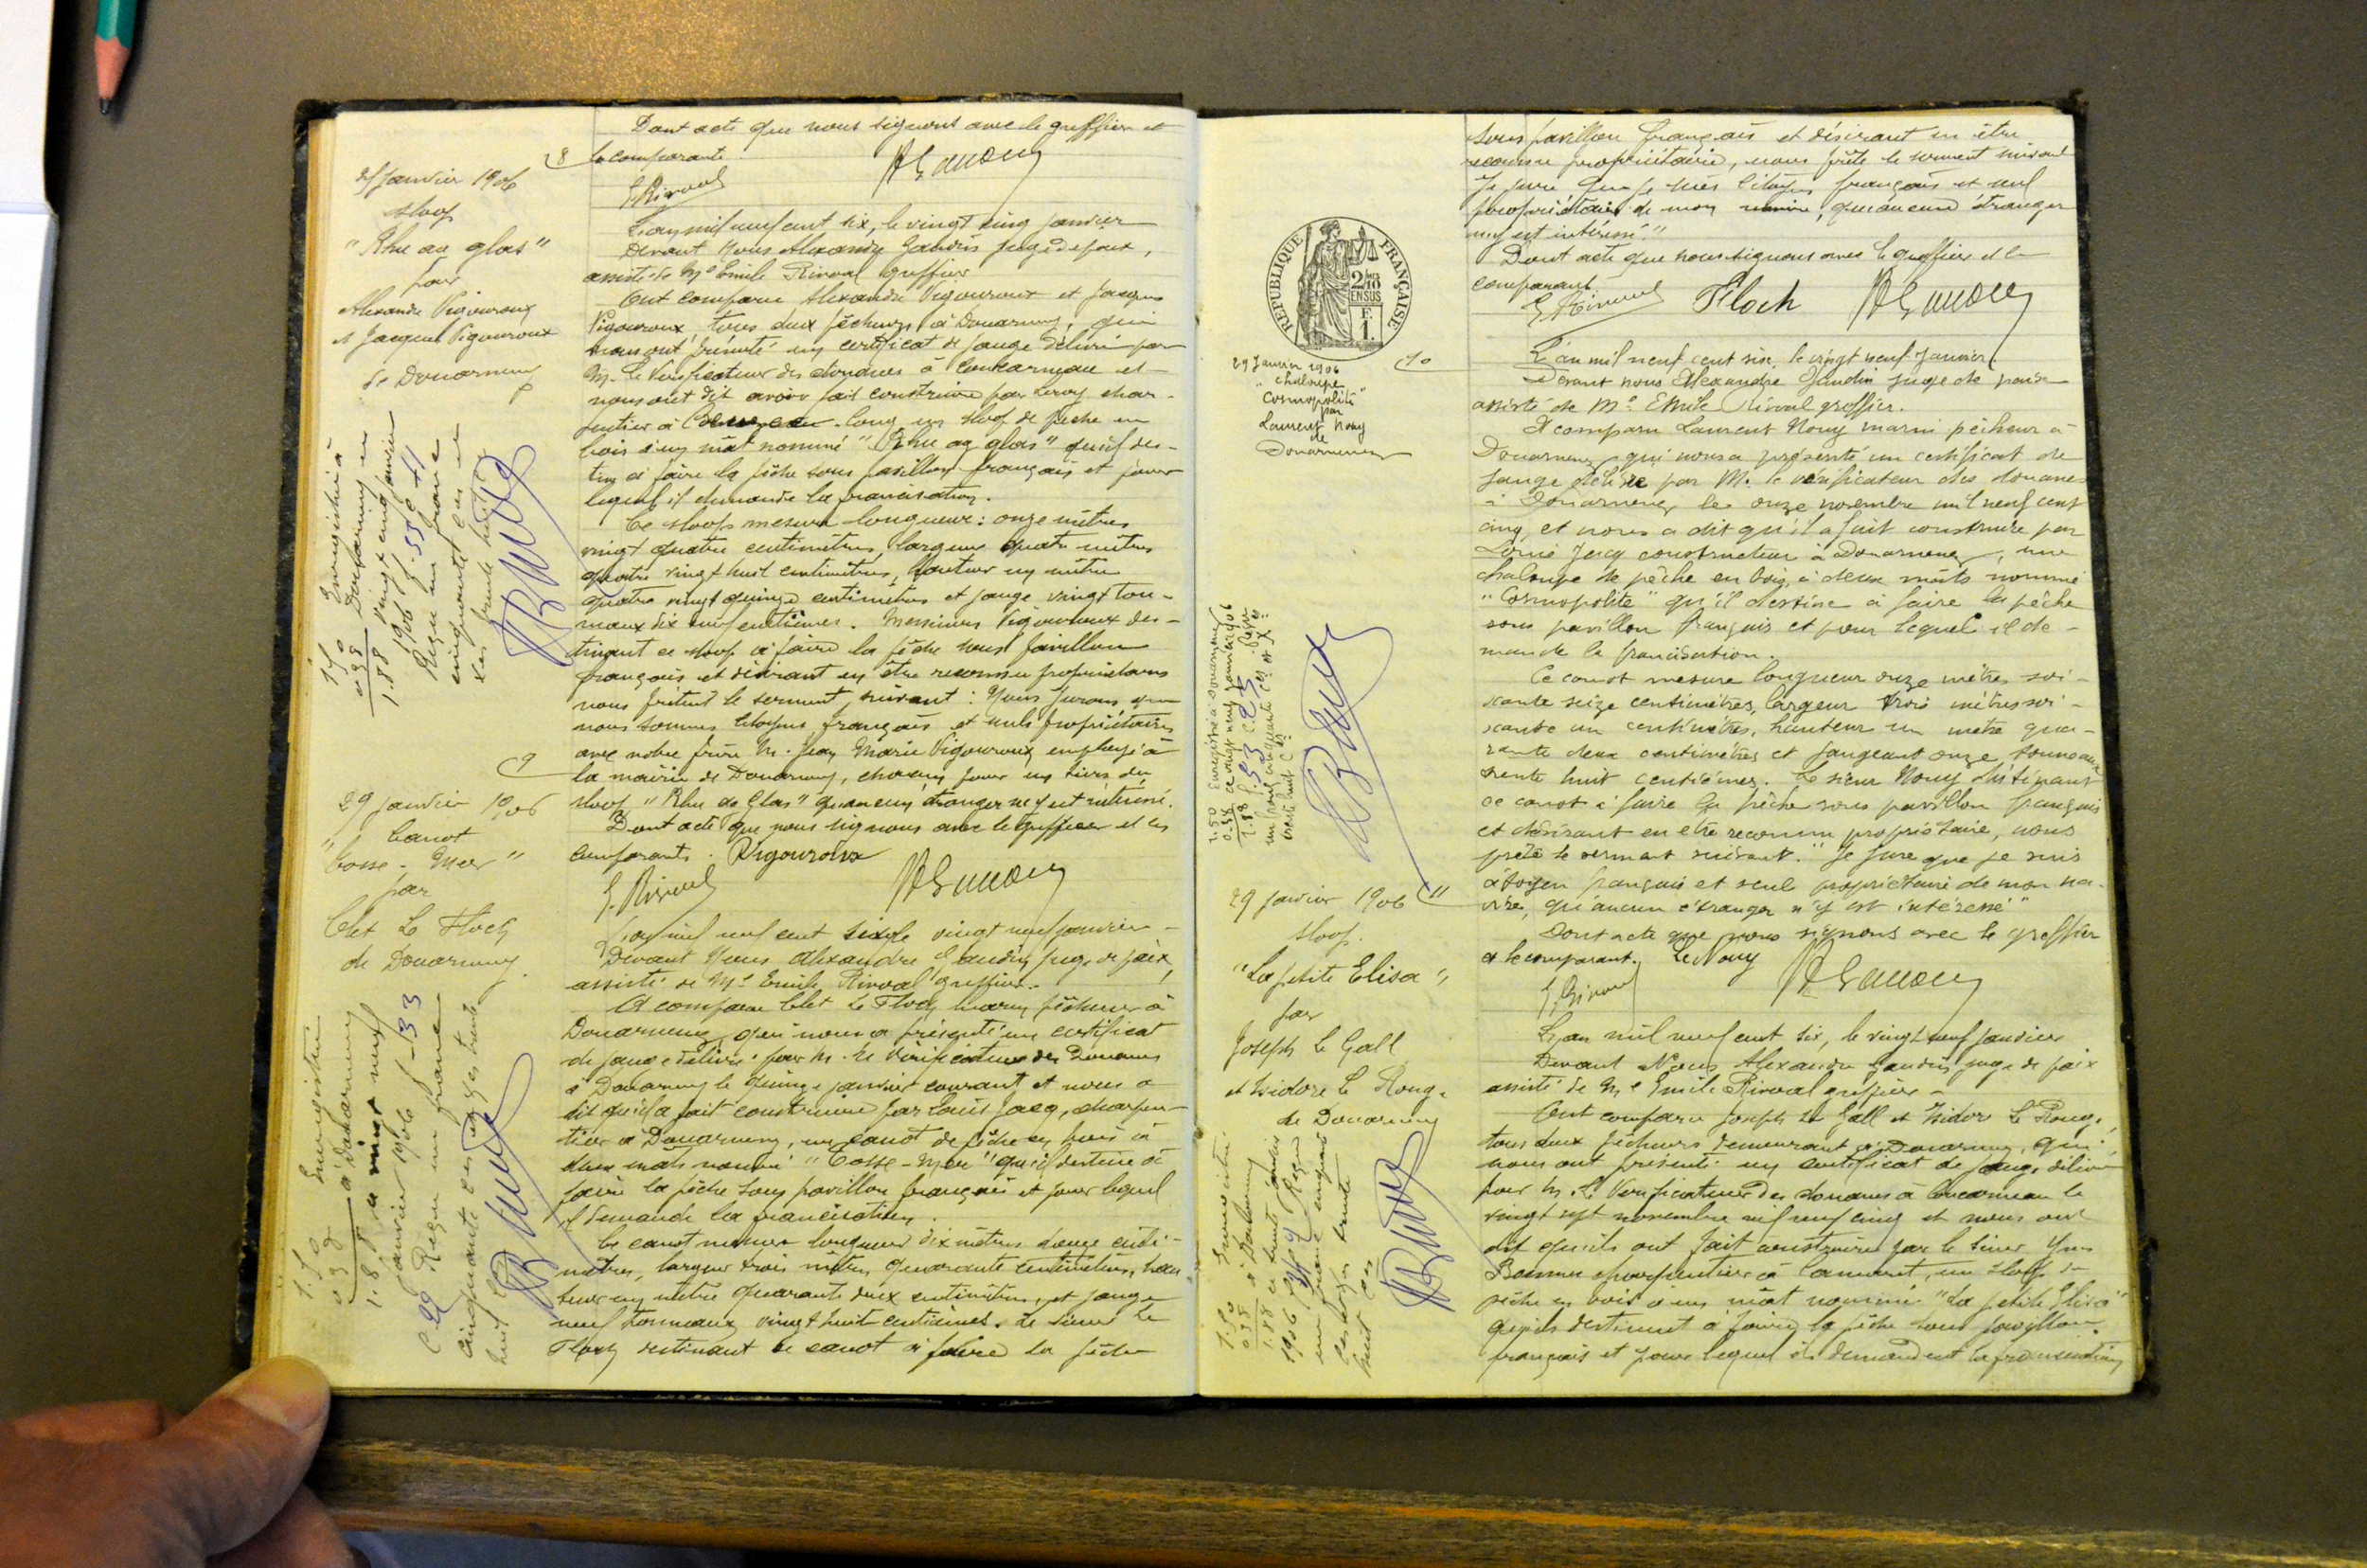 Dont acte que nous signons avec le greffier et
le comparante.
E. Rivoal
25 janvier 1906
sloop
"Rhu ar glas"
par
Alexandre Vigouroux
et Jacques Vigouroux
de Douarnenez
8
L'an mil neuf cent six, le vingt cinq janvier
Devant Nous Alexandre Gaudin juge de paix,
assisté de Me Emile Rivoal greffier
Ont comparu Alexandre Vigouroux et Jacques
Vigouroux, tous deux pêcheurs à Douarnenez, qui
nous ont présenté un certificat de jauge délivré par
M. le Vérificateur des douanes à Concarneau et
nous ont dit avoir fait construire par Leroy char-
pentier à un sloop de pêche en
bois à un mât nommé "Rhu ag glas" qu'il des-
tine à faire la pêche sous pavillon français et pour
lequel il demande la francisation.
Ce sloop mesure longueur : onze mètres
vingt quatre centimètres, largeur quatre mètres
quatre vingt huit centimètres, hauteur un mètre
quatre vingt quinze centimètres et jauge vingt ton-
neaux dix neuf centièmes. Messieurs Vigouroux des-
tinant ce sloop à faire la pêche sous pavillon
français et désirant en être reconnu propriétaires
nous prêtent le serment suivant : Nous jurons que
nous sommes citoyens français et seuls propriétaires
avec notre frère M. Jean Marie Vigouroux, employé à
la mairie de Douarnenez, chacun pour un tiers du
sloop "Rhu ag Glas" qu'aucun étranger n'y est intéressé.
Dont acte que nous signons avec le greffier et les
comparants. Vigouroux
E. Rivoal
Enregistré à
Douarnenez le
vingt cinq janvier
1906
Reçu un franc
cinquante ces
29 janvier 1906
Canot
"Cosse-Meer"
par
Clet Le Floch
de Douarnenez
9
L'an mil neuf cent six le vingt neuf janvier
Devant Nous Alexandre Gaudin juge de paix,
assisté de Me Emile Rivoal greffier.
A comparu Clet Le Floch marin pêcheur à
Douarnenez, qui nous a présenté un certificat
de jauge délivré par M. le Vérificateur des Douanes
à Douarnenez le quinze janvier courant et nous a
dit qu'il a fait construire par Louis Jacq, charpen-
tier à Douarnenez, un canot de pêche en bois à
deux mâts nommé "Cosse-Meer" qu'il destine à
faire la pêche sous pavillon français et pour lequel
il demande la francisation.
Ce canot mesure longueur dix mètres douze centi-
mètres, largeur trois mètres quarante centimètres, hau
teur un mètre quarante deux centimètres, et jauge
neuf tonneaux vingt huit centièmes. Le sieur Le
Floch destinant ce canot à faire la pêche
Enregistré
à Douarnenez
le vingt neuf
janvier 1906
Reçu un franc
cinquante ces
1.50
0.38
1.88
sous pavillon français et désirant en être
reconnu propriétaire, nous prête le serment suivant
Je jure que je suis citoyen français et seul
propriétaire de mon navire, qu'aucun étranger
n'y est intéressé."
Dont acte que nous signons avec le greffier et le
comparant.
E. Rivoal Floch
RÉPUBLIQUE FRANÇAISE
2/10
EN SUS
1F.
29 Janvier 1906
chaloupe
"Cosmopolite"
par
Laurent Nouy
de
Douarnenez
10
L'an mil neuf cent six, le vingt neuf Janvier,
Devant nous Alexandre Gaudin juge de paix
assisté de Me Emile Rivoal greffier.
A comparu Laurent Nouy marin pêcheur à
Douarnenez qui nous a présenté un certificat de
jauge délivré par M. le vérificateur des douanes
à Douarnenez le onze novembre mil neuf cent
cinq, et nous a dit qu'il a fait construire par
Jacq constructeur à Douarnenez, une
chaloupe de pêche en bois, à deux mâts nommé
"Cosmopolite" qu'il destine à faire la pêche
sous pavillon français et pour lequel il de-
mande la francisation.
Ce canot mesure longueur onze mètres soi-
xante seize centimètres, largeur trois mètres soi-
xante un centimètres, hauteur un mètre qua-
rante deux centimètres et jaugeant onze tonneaux
trente huit centièmes. Le sieur Nouy destinant
ce canot à faire la pêche sous pavillon français
et désirant en être reconnu propriétaire, nous
prête le serment suivant. "Je jure que je suis
citoyen français et seul propriétaire de mon na-
vire, qu'aucun étranger n'y est intéressé"
Dont acte que nous signons avec le greffier
et le comparant. Le Nouy
E. Rivoal
1.50
0.38
1.88
Enregistré à Douarnenez
le vingt neuf janvier 1906
29 janvier 1906
sloop.
"La petite Elisa",
par
Joseph Le Gall
et Isidore Le Roug.
de Douarnenez
11
L'an mil neuf cent six, le vingt neuf janvier
Devant Nous Alexandre Gaudin juge de paix
assisté de Me Emile Rivoal greffier
Ont comparu Joseph Le Gall et Isidore Le Roug.,
tous deux pêcheurs demeurant à Douarnenez, qui
nous ont présenté un certificat de jauge délivré
par M. le Vérificateur des douanes à Concarneau le
vingt sept novembre mil neuf cinq et nous ont
dit qu'ils ont fait construire par le sieur Yves
charpentier à Camaret, un sloop de
pêche en bois à un mât nommé "La petite Elisa"
qu'ils destinent à faire la pêche sous pavillon
français et pour lequel ils demandent la francisation
1.50
0.38
1.88